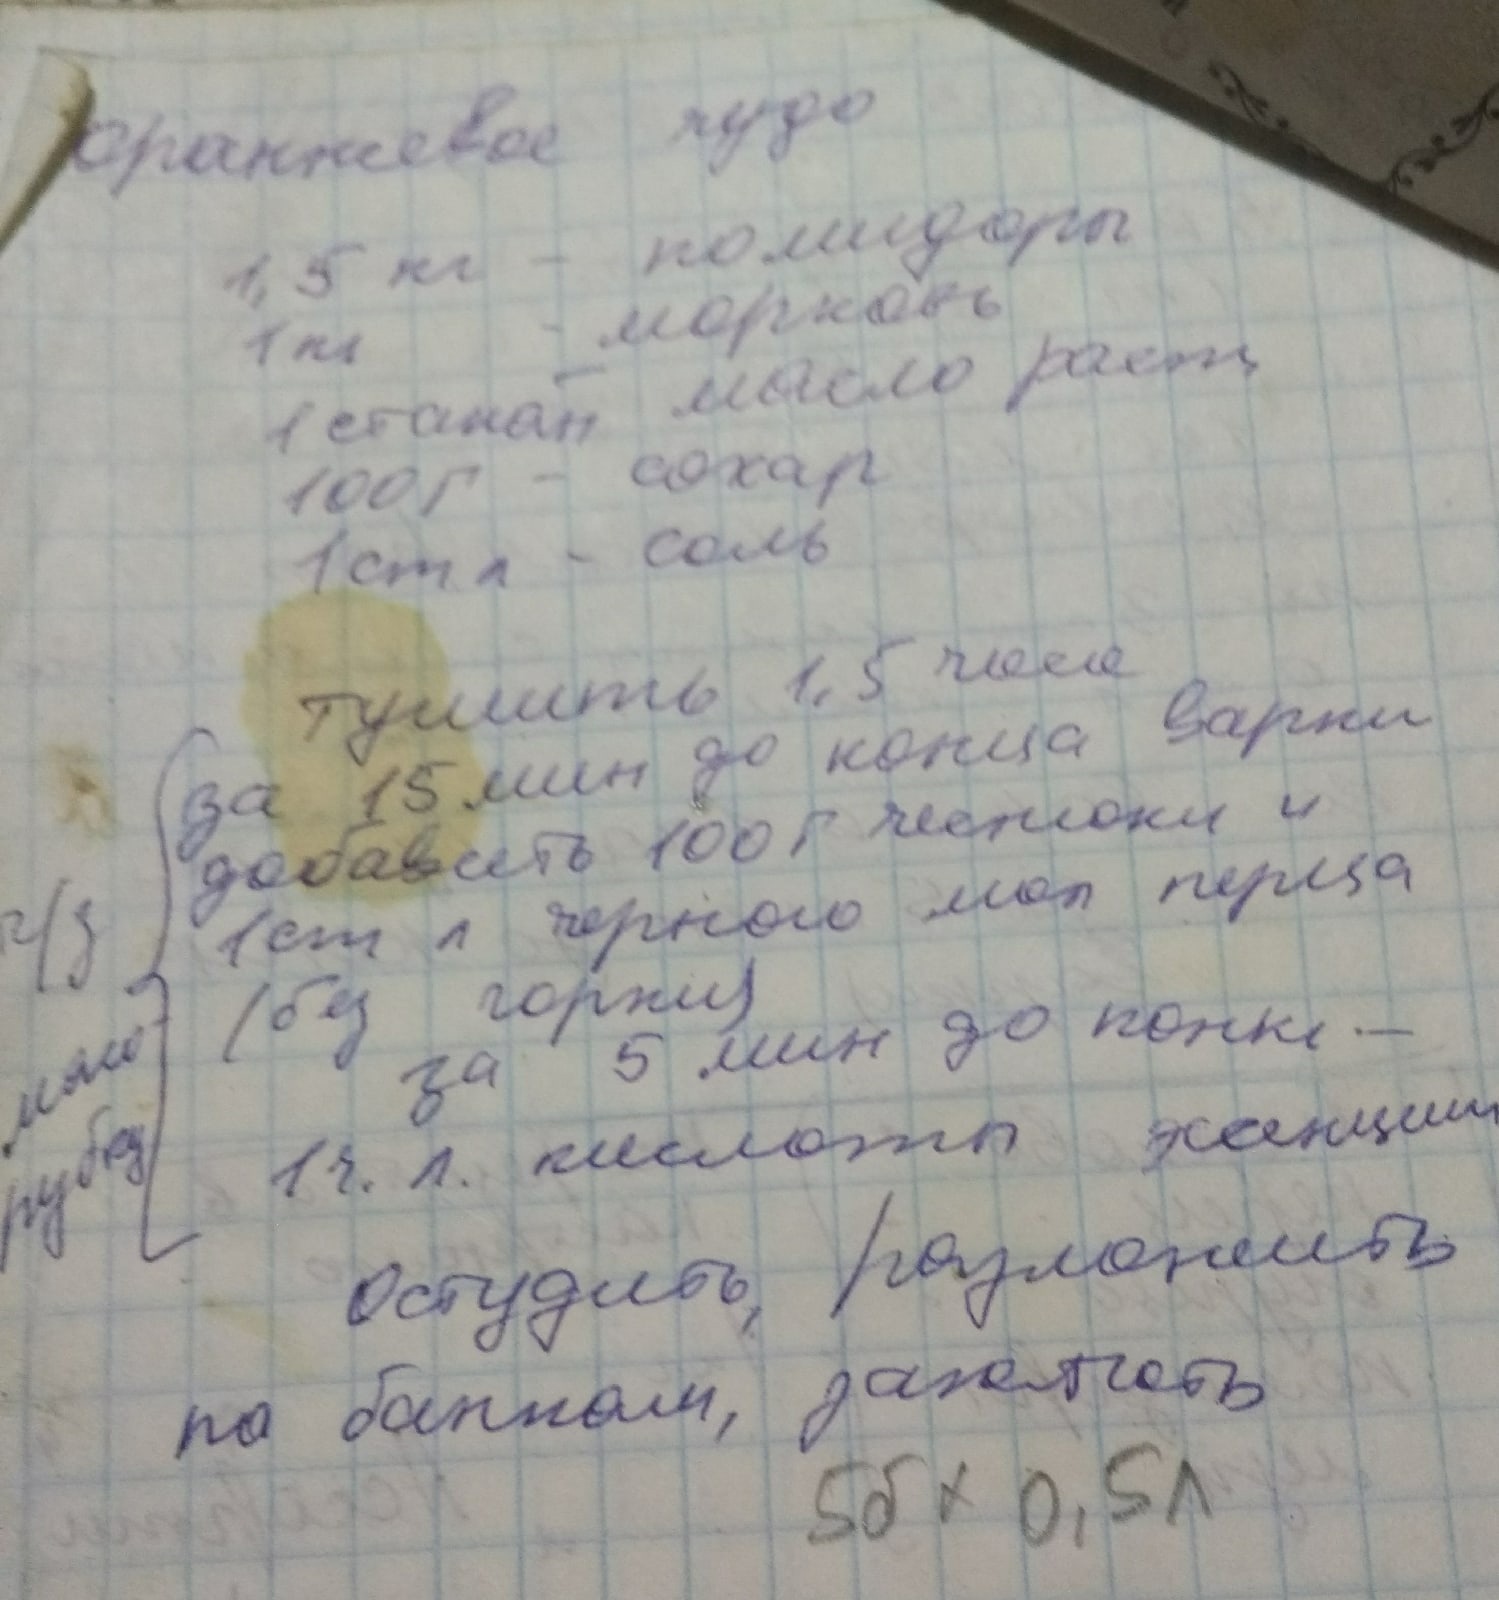 Оранжевое чудо
1,5 кг - помидоры
1 кг - морковь
1 стакан - масло раст
100 г - сахар
1 ст л - соль
Тушить 1,5 часа
за 15 мин до конца варки
добавить 100 г чеснока и
1 ст л черного мол перца
(без горки)
за 5 мин до конц -
1 ч. л. кислоты
ч/з
мясо
Остудить, разложить
по банкам, закатать
5б x 0,5л